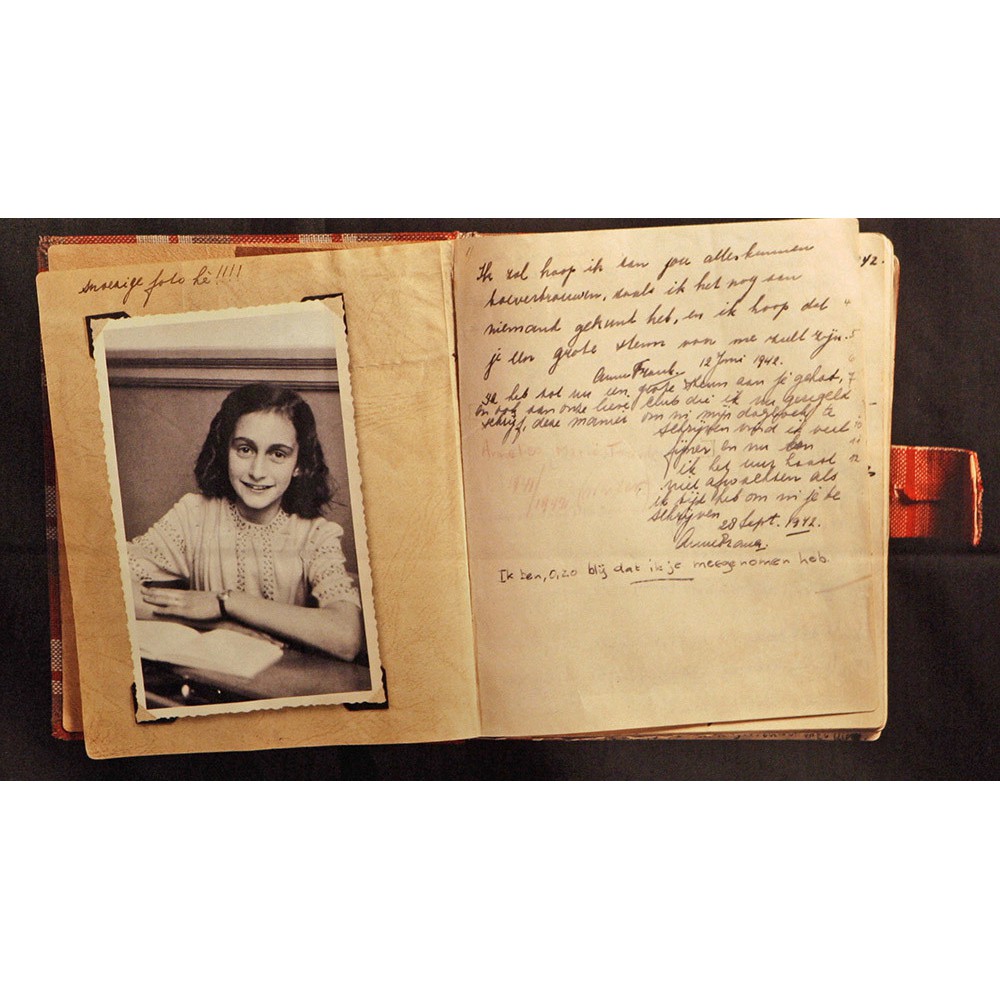 snoezige foto hè!!!!
Ik zal hoop ik aan jou alles kunnen
toevertrouwen, zoals ik het nog aan
niemand gekund heb, en ik hoop dat
je een grote steun voor me zult zijn.
Anne Frank. 12 Juni 1942.
Ik heb tot nu een grote steun aan je gehad,
en ook aan onze lieve club die ik nu geregeld
schrijf, deze manier om in mijn dagboek te
schrijven vind ik veel
fijner en nu kan
ik het uur haast
niet afwachten als
ik tijd heb om in je te
schrijven.
28 Sept. 1942.
Anne Frank.
Ik ben, O, zo blij dat ik je meegenomen heb.
42.
5
6
7
10
11
12